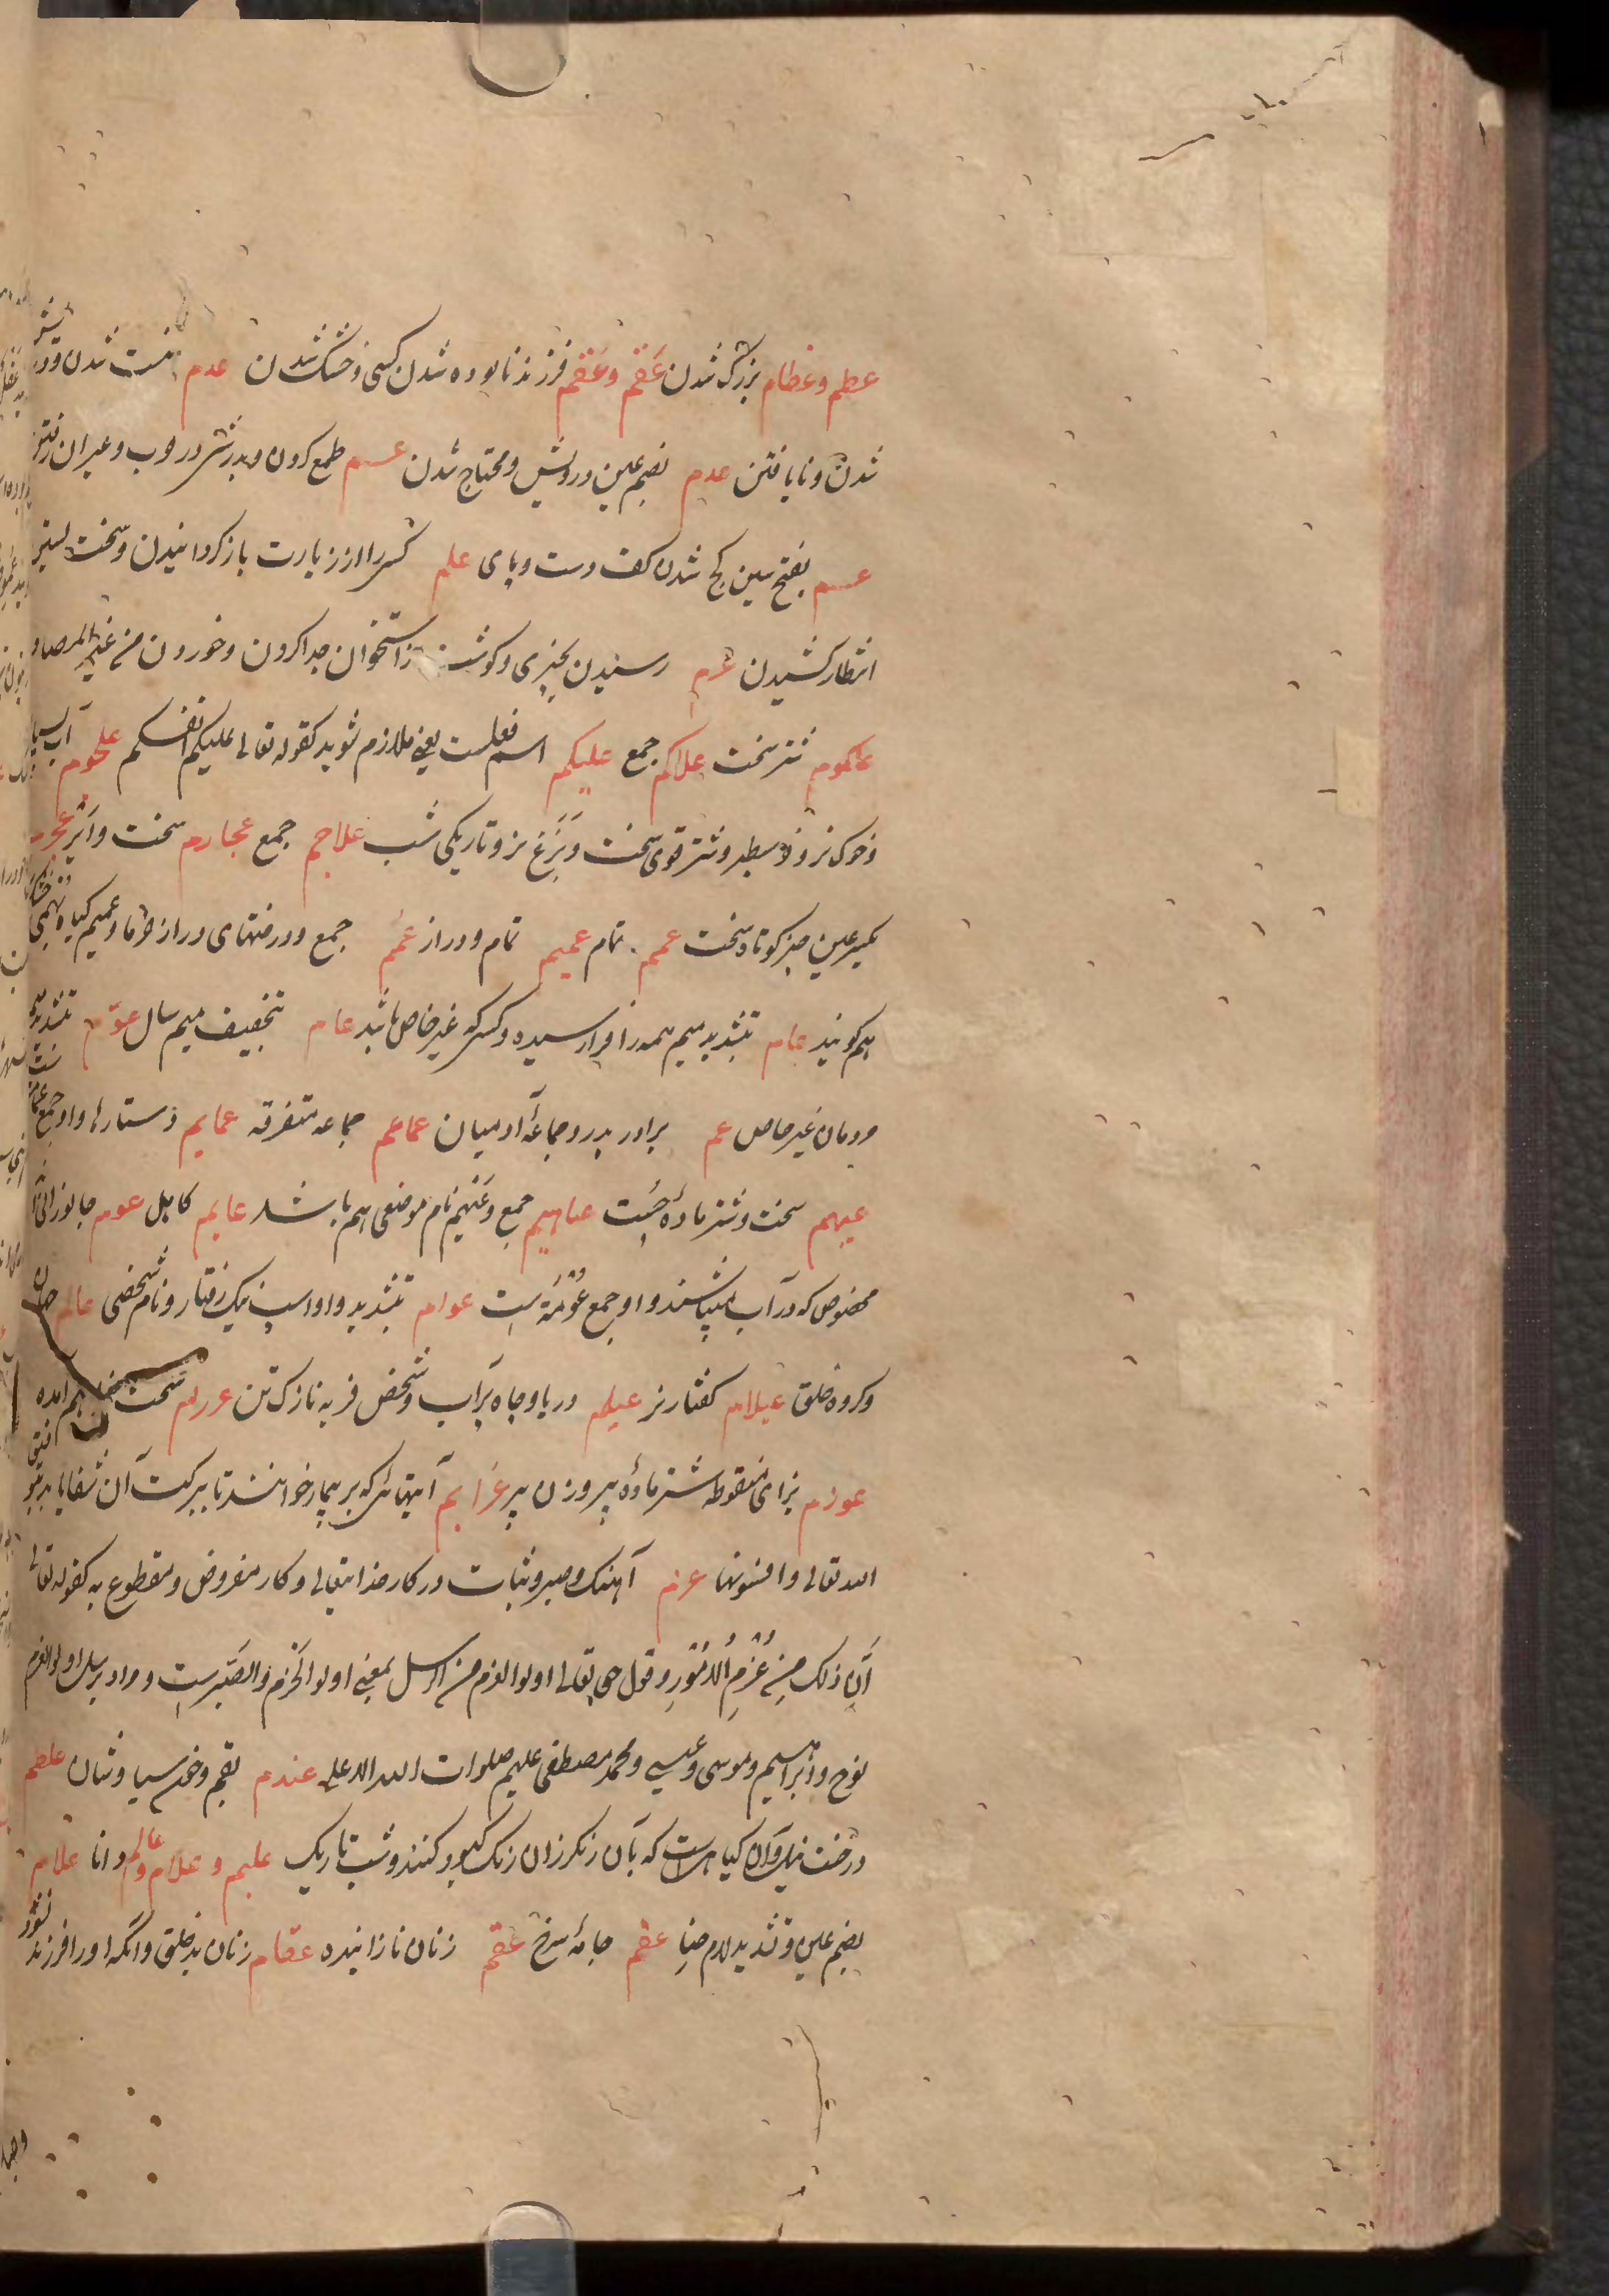 عظم وعظام بزرگ شدن عَقَم وعُقم فرزند نابوده شدن کسی وخشک شدن عدم نیست شدن ودرویش
شدن ونایافتن عدم بضم عین درویش ومحتاج شدن عسم طمع کردن وبدر شدن در حرب وغیر آن رفتن
عسم بفتح سین کج شدن کف دست وپای علم کسی را از زیارت باز کردانیدن وسخت
انتظار کشیدن عرم رسیدن بچیزی وکوشت از استخوان جدا کردن وخوردن من غیر المصادر
علکوم شتر سخت علاکم جمع علیکم اسم فعلست یعنی ملازم شوید کقوله تعالی علیکم انفسکم علجوم آب بسیار
وخوک نر وشتر قوی سخت وبَزَغ نر وتاریکی شب علاجم جمع عجارم سخت وایر عجرم
بکسر عین چیز کوتاه سخت عمم تمام عمیم تمام ودراز عُمُم جمع ودرختهای دراز خرما وعمیم کیاه تهمی
هم کویند عام بتشدید میم همه را فرا رسیده وکسی که غیر خاص باشد عام بتخفیف میم سال عوّم بتشدید
مردمان غیر خاص عم برادر پدر وجماعهٔ آدمیان عماعم جماعه متفرقه عمایم دستارها واو جمع عمامه
عیهم سخت وشتر مادهٔ چست عیاهیم جمع وعَیهم نام موضعی هم باشد عایم کاهل عوم جانورانی
مخصوص که در آب میباشند واو جمع عُومَة است عوام بتشدید واو اسپ نیک رفتار ونام شخصی عالم جهان
وکروه خلق عیلام کفتار نر عیلم دریا وچاه پر آب وشخص فربه نازک تن عردم سخت هم آمده
عوزم بزای منقوطه شتر مادهٔ پیر وزن پیر عزایم آیتهائی که بر بیمار خوانند تا ببرکت آن شفا یابد بتوفیق
الله تعالی وافسونها عزم آهنک وصبر وثبات در کار خدایتعالی وکار مفروض ومقطوع به کقوله تعالی
اِنّ ذلک مِن عَزمِ الاُمُورِ وقول حق تعالی اولوا العزم من الرسل بمعنی اولوا الحزم والصّبرست ومراد برسل اولوا العزم
نوح وابراهیم وموسی وعیسی ومحمد مصطفی علیهم صلوات الله الملک العلی عندم بقم وخون سیاوشان عظلم
درخت نیل وآن کیاهیست که بآن رنکرزان رنک کبود کنند وشب تاریک علیم وعلام وعالم دانا علام
بضم عین وتشدید لام حنا عقم جامهٔ سرخ عُقُم زنان نازاینده عقام زنان بدخلق وآنکه او را فرزند نشود